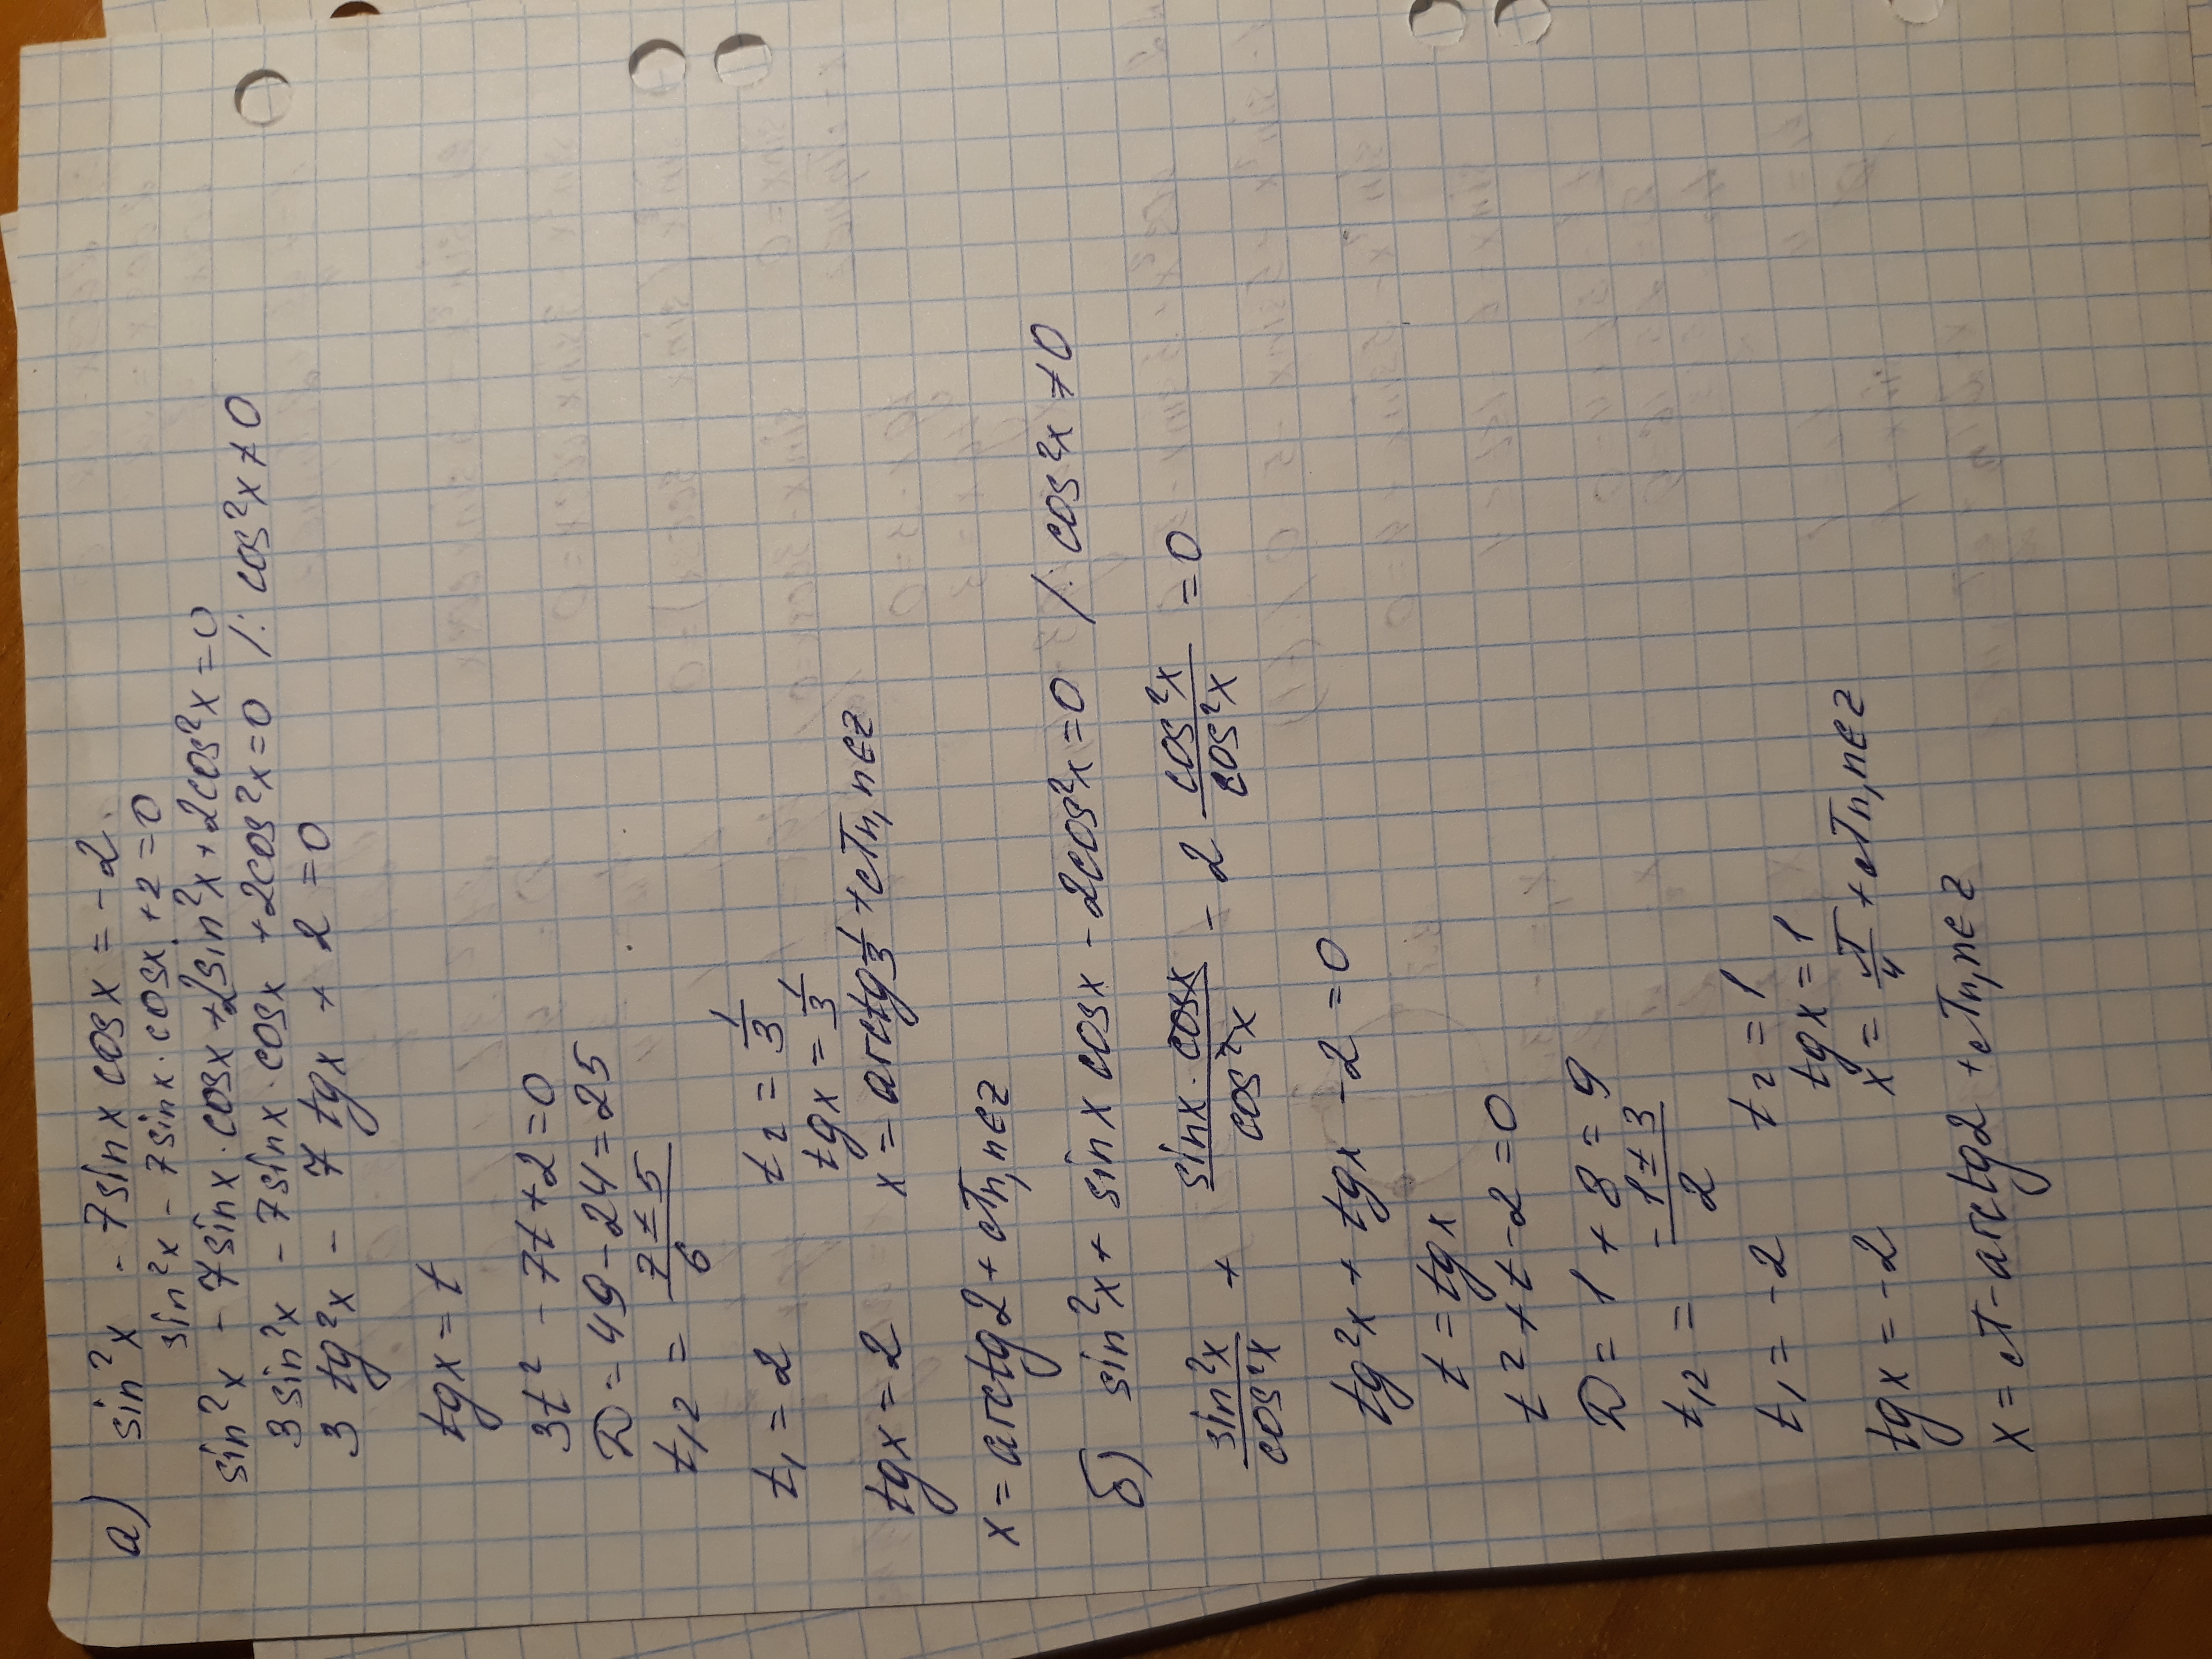 а) sin²x - 7sinx cosx = -2.
sin²x - 7sinx·cosx + 2 = 0
sin²x - 7sinx·cosx + 2sin²x + 2cos²x = 0
3sin²x - 7sinx·cosx + 2cos²x = 0 /: cos²x ≠ 0
3tg²x - 7tgx + 2 = 0
tgx = t
3t² - 7t + 2 = 0
D = 49 - 24 = 25
t₁,₂ = (7 ± 5)/6
t₁ = 2 t₂ = 1/3
tgx = 2 tgx = 1/3
x = arctg2 + πn, n∈z x = arctg 1/3 + πn, n∈z
б) sin²x + sinx cosx - 2cos²x = 0 /: cos²x ≠ 0
sin²x/cos²x + sinx·cosx/cos²x - 2 cos²x/cos²x = 0
tg²x + tgx - 2 = 0
t = tgx
t² + t - 2 = 0
D = 1 + 8 = 9
t₁,₂ = (-1 ± 3)/2
t₁ = -2 t₂ = 1
tgx = -2 tgx = 1
x = π - arctg2 + πn, n∈z x = π/4 + πn, n∈z